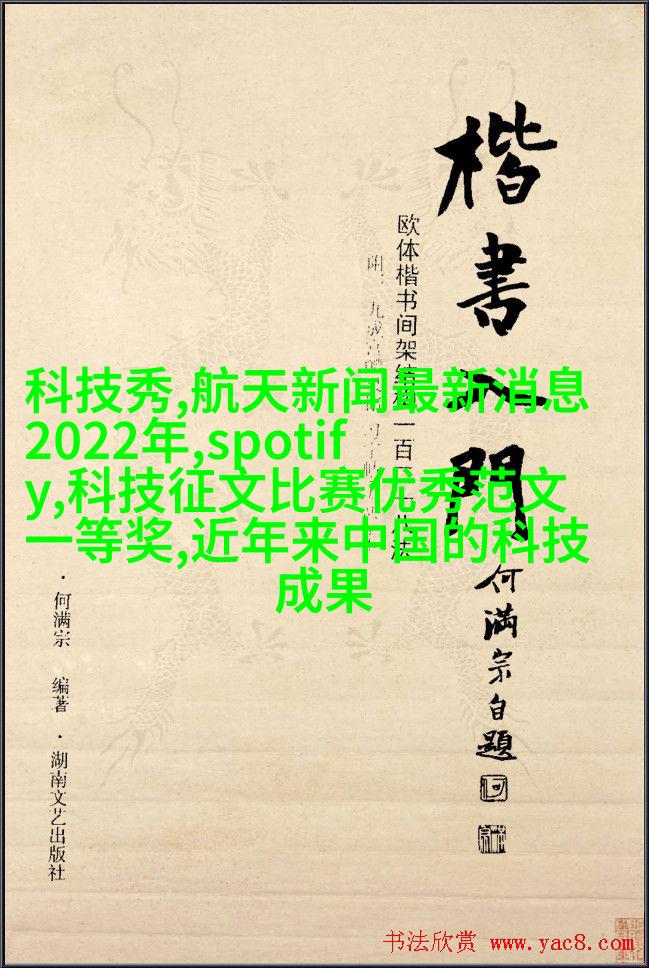 楷書入門
欧体楷书间架结构一百二十八法
何满宗自题
科技秀,航天新闻最新消息
2022年,spotif
y,科技征文比赛优秀范文
一等奖,近年来中国的科技
成果
·何满宗 编著·湖南文艺出版社
书法欣赏 www.yac8.com